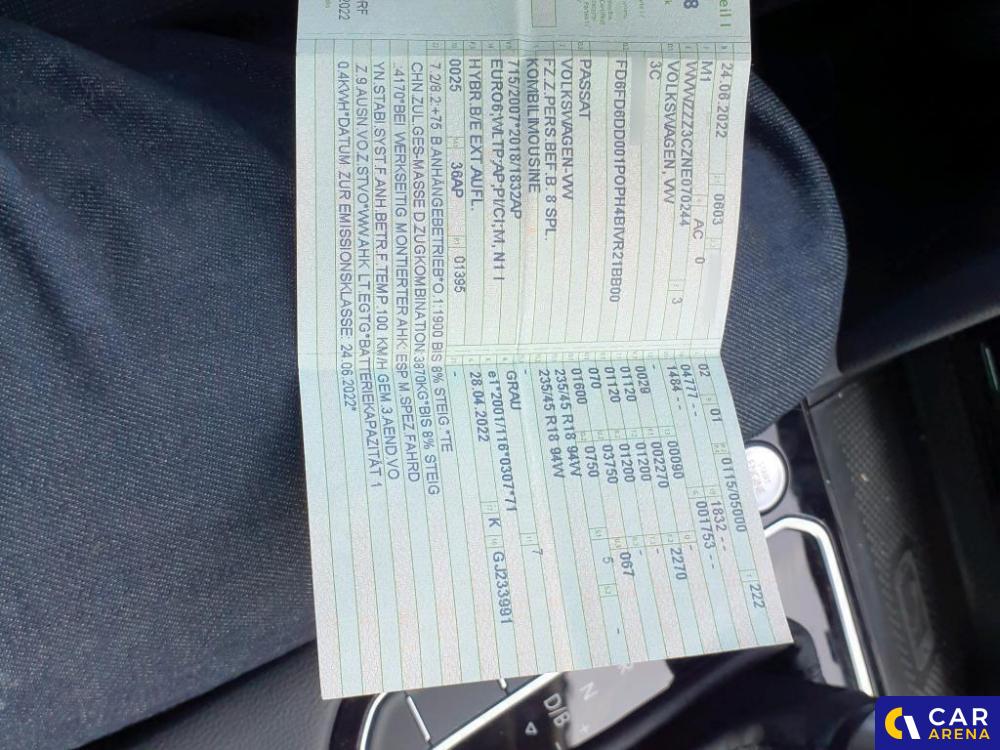 eil I
24.06.2022 0603
M1 AC 0
WVWZZZ3CZNE070244 3
VOLKSWAGEN, VW
3C
FD6FD6DD001POPH4BIVR21BB00
PASSAT
VOLKSWAGEN-VW
FZ.Z.PERS.BEF.B. 8 SPL.
KOMBILIMOUSINE
715/2007*2018/1832AP
EURO6;WLTP;AP;PI/CI;M, N1 I
HYBR.B/E EXT.AUFL.
0025 36AP 01395
02 01 0115/05000 222
04777-- 1832--
1484-- 001753--
- 00090 - 2270
002270 -
0029 01200 -
01120 01200 067
01120 03750 5 -
070 0750
01600
235/45 R18 94W
235/45 R18 94W
-
GRAU 7
e1*2001/116*0307*71
28.04.2022 K GJ233991
-
7.2/8.2:+75 B.ANHÄNGEBETRIEB*O.1:1900 BIS 8% STEIG.*TE
CHN.ZUL.GES-MASSE D.ZUGKOMBINATION:3870KG*BIS 8% STEIG
.:4170*BEI WERKSEITIG MONTIERTER AHK: ESP M.SPEZ.FAHRD
YN.STABI.SYST.F.ANH.BETR.F.TEMP.100 KM/H GEM.3.AEND.VO
Z.9.AUSN.VO.Z.STVO*WW.AHK LT.EGTG*BATTERIEKAPAZITÄT 1
0.4KWH*DATUM ZUR EMISSIONSKLASSE: 24.06.2022*
2022
START
ENGINE
R
N
D/B
CAR
ARENA